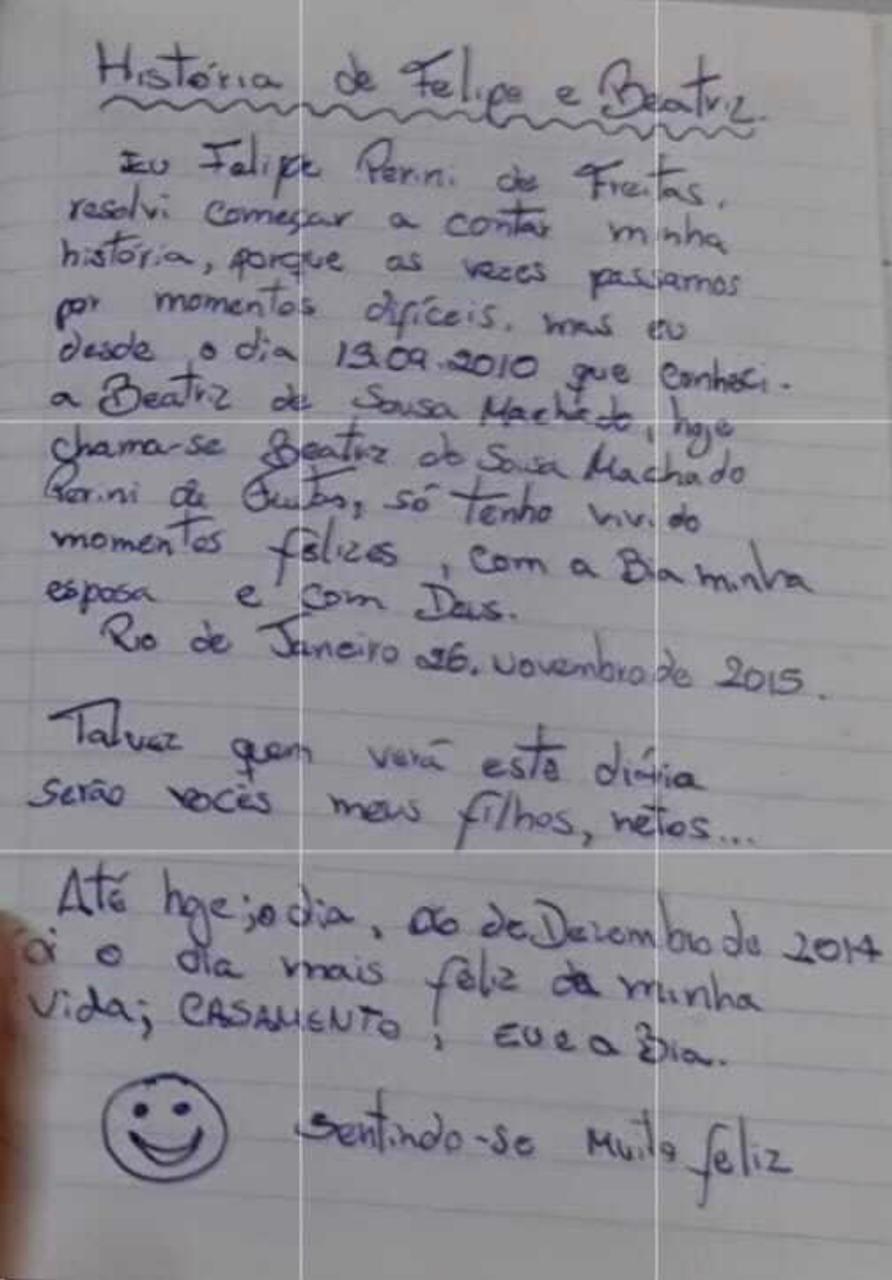 História de Felipe e Beatriz
Eu Felipe Perini de Freitas,
resolvi começar a contar minha
história, porque as vezes passamos
por momentos difíceis. mas eu
desde o dia 19.09.2010 que conheci.
a Beatriz de Sousa Machado, hoje
chama-se Beatriz de Sousa Machado
Perini de Freitas, só tenho vivido
momentos felizes, com a Bia minha
esposa e com Deus.
Rio de Janeiro 26. novembro de 2015.
Talvez quem verá este diária
serão vocês meus filhos, netos...
Até hoje; o dia, 06 de Dezembro de 2014
o dia mais feliz da minha
vida; CASAMENTO; EU e a Bia.
Sentindo-se Muito feliz